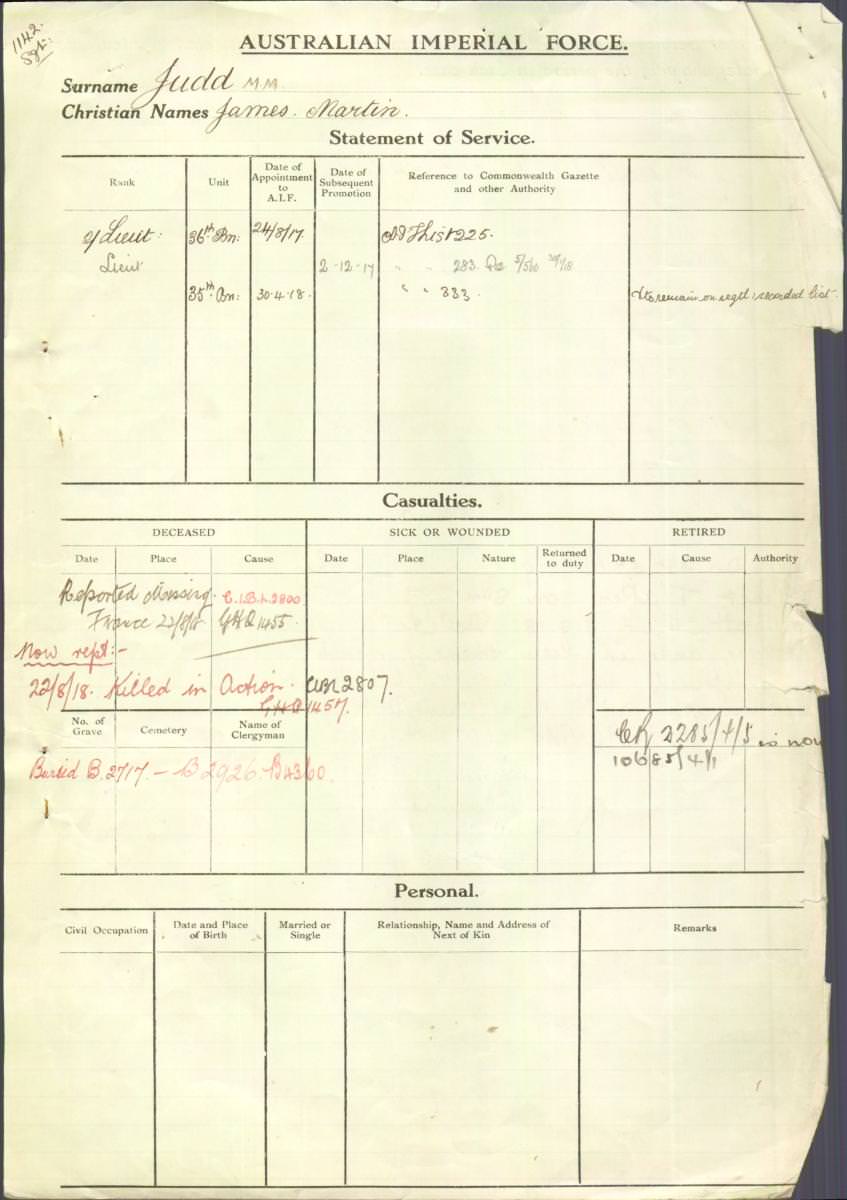 1142.
Sgt:
AUSTRALIAN IMPERIAL FORCE.
Surname Judd M.M.
Christian Names James. Martin.
Statement of Service.
Rank
Unit
Date of Appointment to A.I.F.
Date of Subsequent Promotion
Reference to Commonwealth Gazette and other Authority
2/Lieut: 36th Bn: 24/8/17. List 225.
Lieut 2-12-17 " " 283.
35th Bn: 30.4.18. " " 333. to remain on regtl seconded list.
Casualties.
DECEASED SICK OR WOUNDED RETIRED
Date Place Cause Date Place Nature Returned to duty Date Cause Authority
Reported Missing. 2800
France 22/8/18 GHQ 1455.
Now rept:-
22/8/18. Killed in Action. 2807.
GHQ 1457.
No. of Grave Cemetery Name of Clergyman
2285/4/5 is now
10685/4/1
Buried B. 2717. - B 2926. B4360.
Personal.
Civil Occupation
Date and Place of Birth
Married or Single
Relationship, Name and Address of Next of Kin
Remarks